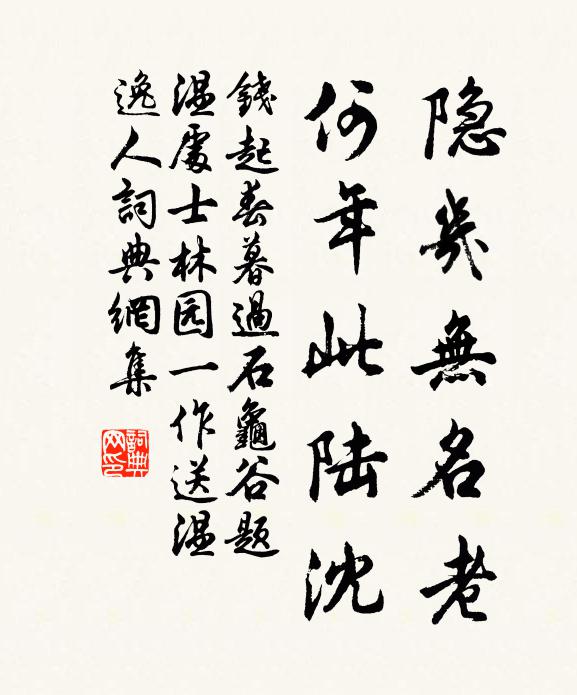 隐几無名老
何年此陆沈
錢起春暮過石龜谷题
温處士林园一作送温
逸人詞典網集
詞典
网印